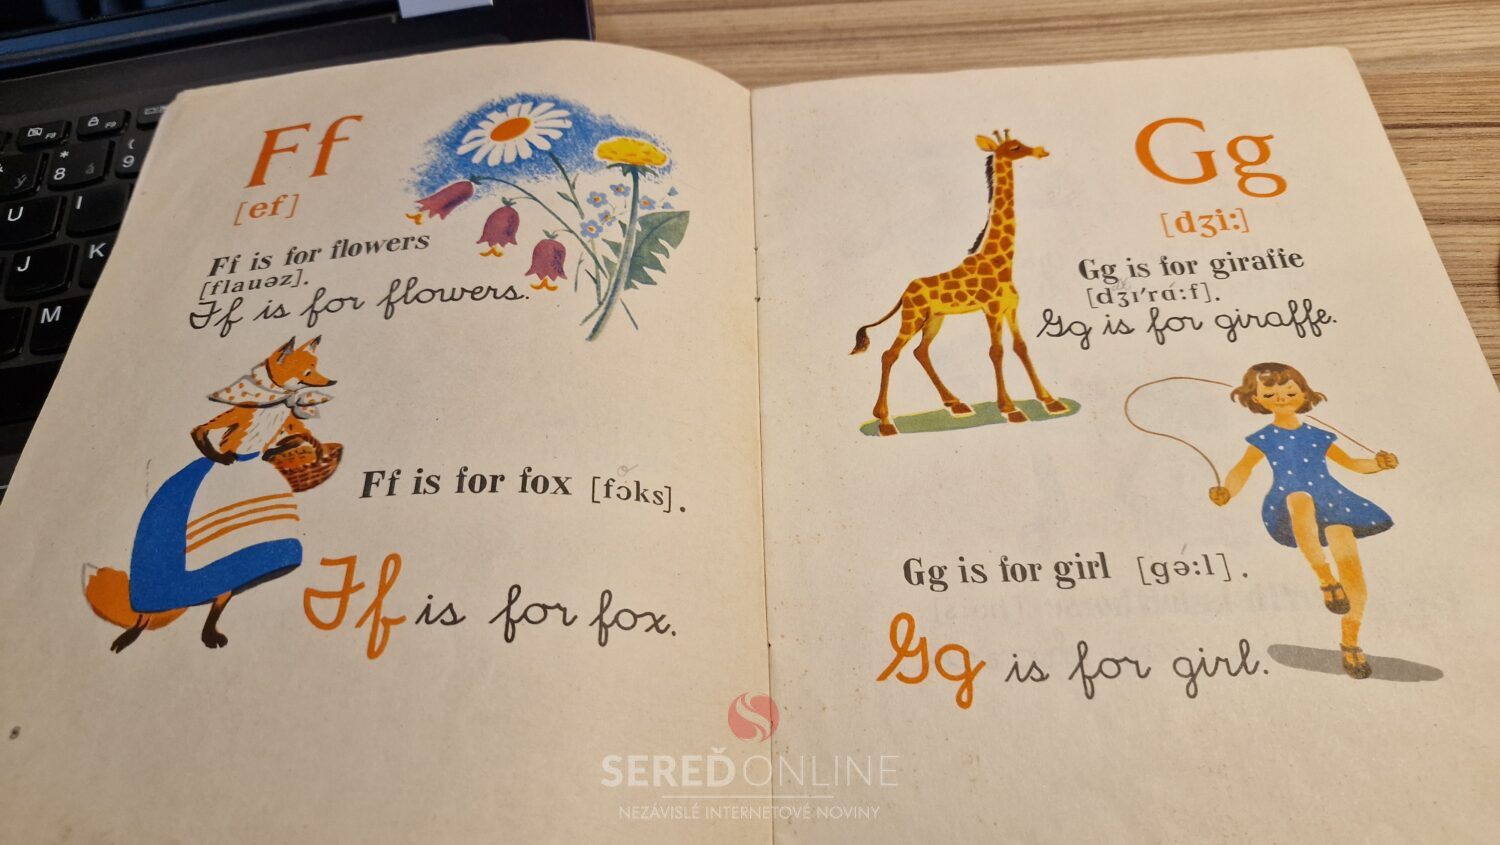 Ff
[ef]
Ff is for flowers
[flauəz].
Ff is for flowers.
Ff is for fox [fɔks].
Ff is for fox.
8
Gg
[dʒi:]
Gg is for giraffe
[dʒɪ'rɑ:f].
Gg is for giraffe.
Gg is for girl [gə:l].
Gg is for girl.
SEREĎ ONLINE
NEZÁVISLÉ INTERNETOVÉ NOVINY
F9
* 8 á
( 9
ý
U
I
J
K
M